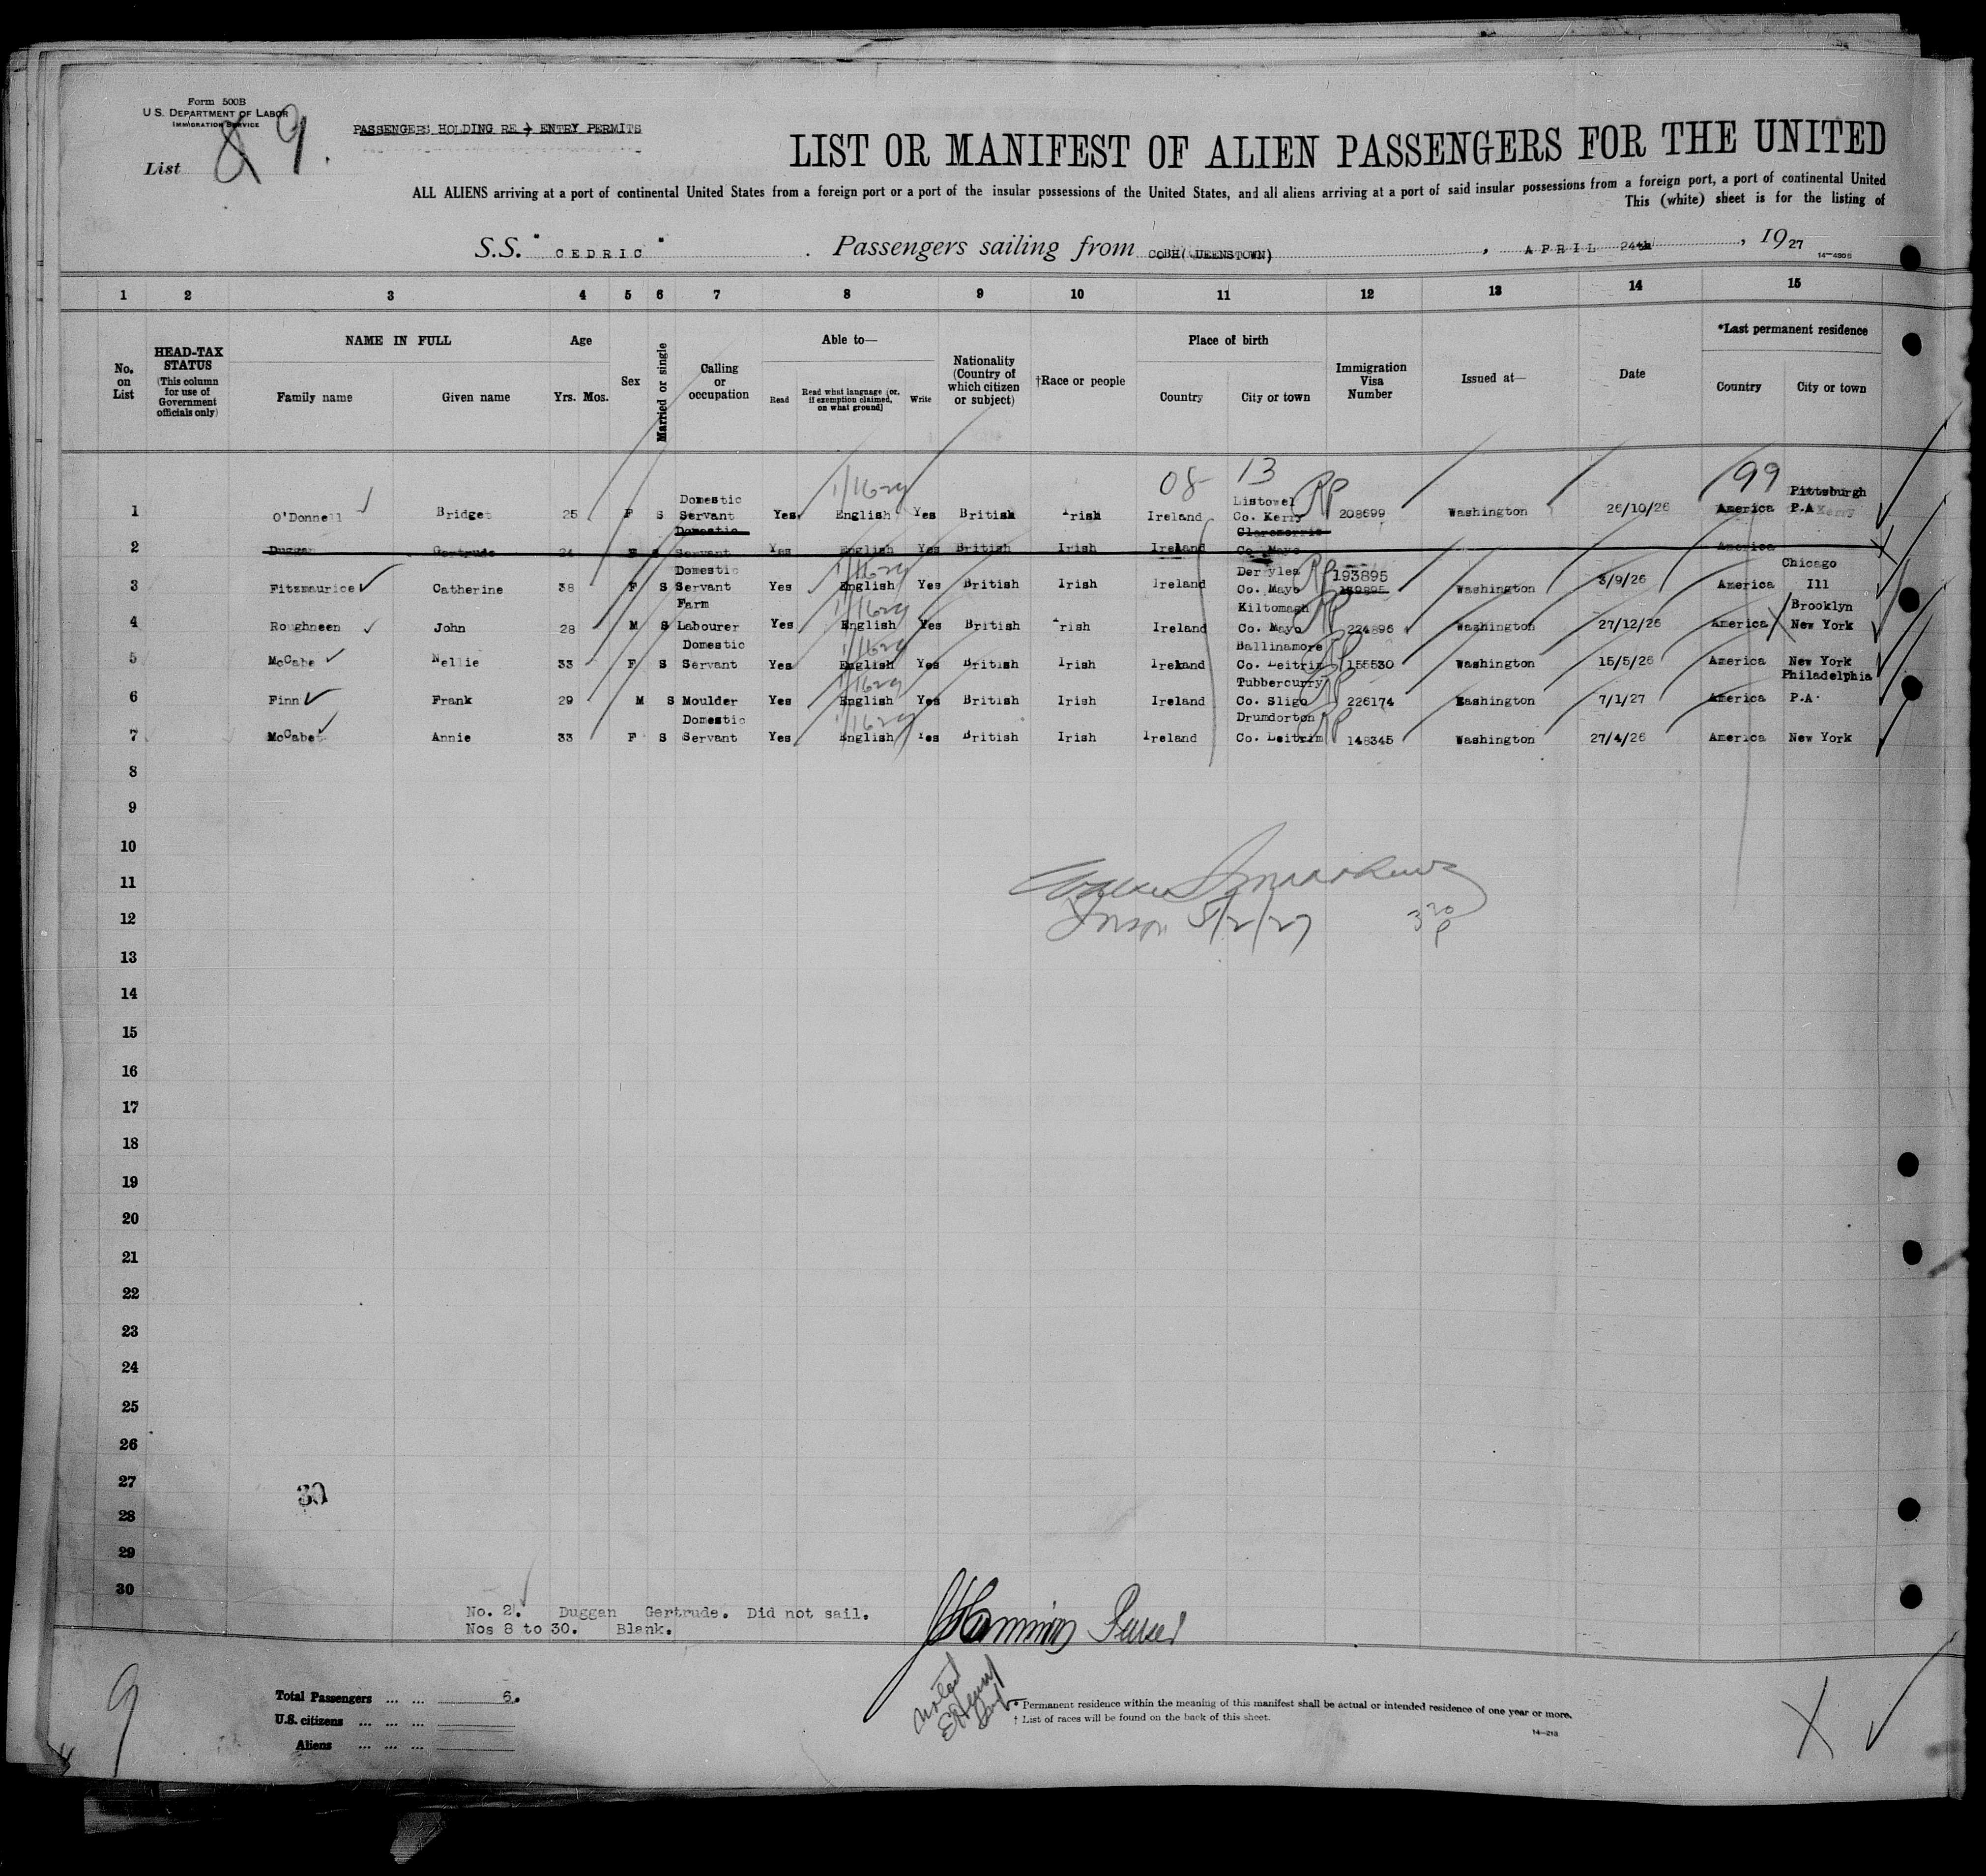 Form 500B
U.S. DEPARTMENT OF LABOR
IMMIGRATION SERVICE
List 9.
PASSENGERS HOLDING RE ENTRY PERMITS
LIST OR MANIFEST OF ALIEN PASSENGERS FOR THE UNITED
ALL ALIENS arriving at a port of continental United States from a foreign port or a port of the insular possessions of the United States, and all aliens arriving at a port of said insular possessions from a foreign port, a port of continental United
This (white) sheet is for the listing of
S.S. "CEDRIC". Passengers sailing from COBH( UEENSTOWN), APRIL 24th, 1927
14-4806
1 2 3 4 5 6 7 8 9 10 11 12 13 14 15
No. on List
HEAD-TAX STATUS (This column for use of Government officials only)
NAME IN FULL
Family name Given name
Age
Yrs. Mos.
Sex
Married or single
Calling or occupation
Able to—
Read Read what language [or, if exemption claimed, on what ground] Write
Nationality (Country of which citizen or subject)
†Race or people
Place of birth
Country City or town
Immigration Visa Number
Issued at—
Date
*Last permanent residence
Country City or town
08- 13 99
1 O'Donnell Bridget 25 F S Domestic Servant Yes English 1/1629 Yes British Irish Ireland Listowel Co. Kerry RP 208699 Washington 26/10/26 America Pittsburgh P.A
2 Duggan Gertrude 24 F S Domestic Servant Yes English Yes British Irish Ireland Claremorris Co. Mayo America
3 Fitzmaurice Catherine 38 F S Domestic Servant Yes English 1/1629 Yes British Irish Ireland Derrylea Co. Mayo RP 193895 139895 Washington 3/9/26 America Chicago Ill
4 Roughneen John 28 M S Farm Labourer Yes English 1/1629 Yes British Irish Ireland Kiltomagh Co. Mayo RP 224896 Washington 27/12/26 America Brooklyn New York
5 McCabe Nellie 33 F S Domestic Servant Yes English 1/1629 Yes British Irish Ireland Ballinamore Co. Leitrim RP 155530 Washington 15/5/26 America New York
6 Finn Frank 29 M S Moulder Yes English 1/1629 Yes British Irish Ireland Tubbercurry Co. Sligo RP 226174 Washington 7/1/27 America Philadelphia P.A.
7 McCabe Annie 33 F S Domestic Servant Yes English 1/1629 Yes British Irish Ireland Drumdorton Co. Leitrim RP 148345 Washington 27/4/26 America New York
8
9
10
11
12 5/2/27 3 20 P
13
14
15
16
17
18
19
20
21
22
23
24
25
26
27 30
28
29
30
No. 2. Duggan Gertrude. Did not sail.
Nos 8 to 30. Blank.
Purser
9
Total Passengers ... ... 6.
U.S. citizens ... ... ...
Aliens ... ... ...
* Permanent residence within the meaning of this manifest shall be actual or intended residence of one year or more.
† List of races will be found on the back of this sheet.
14-213